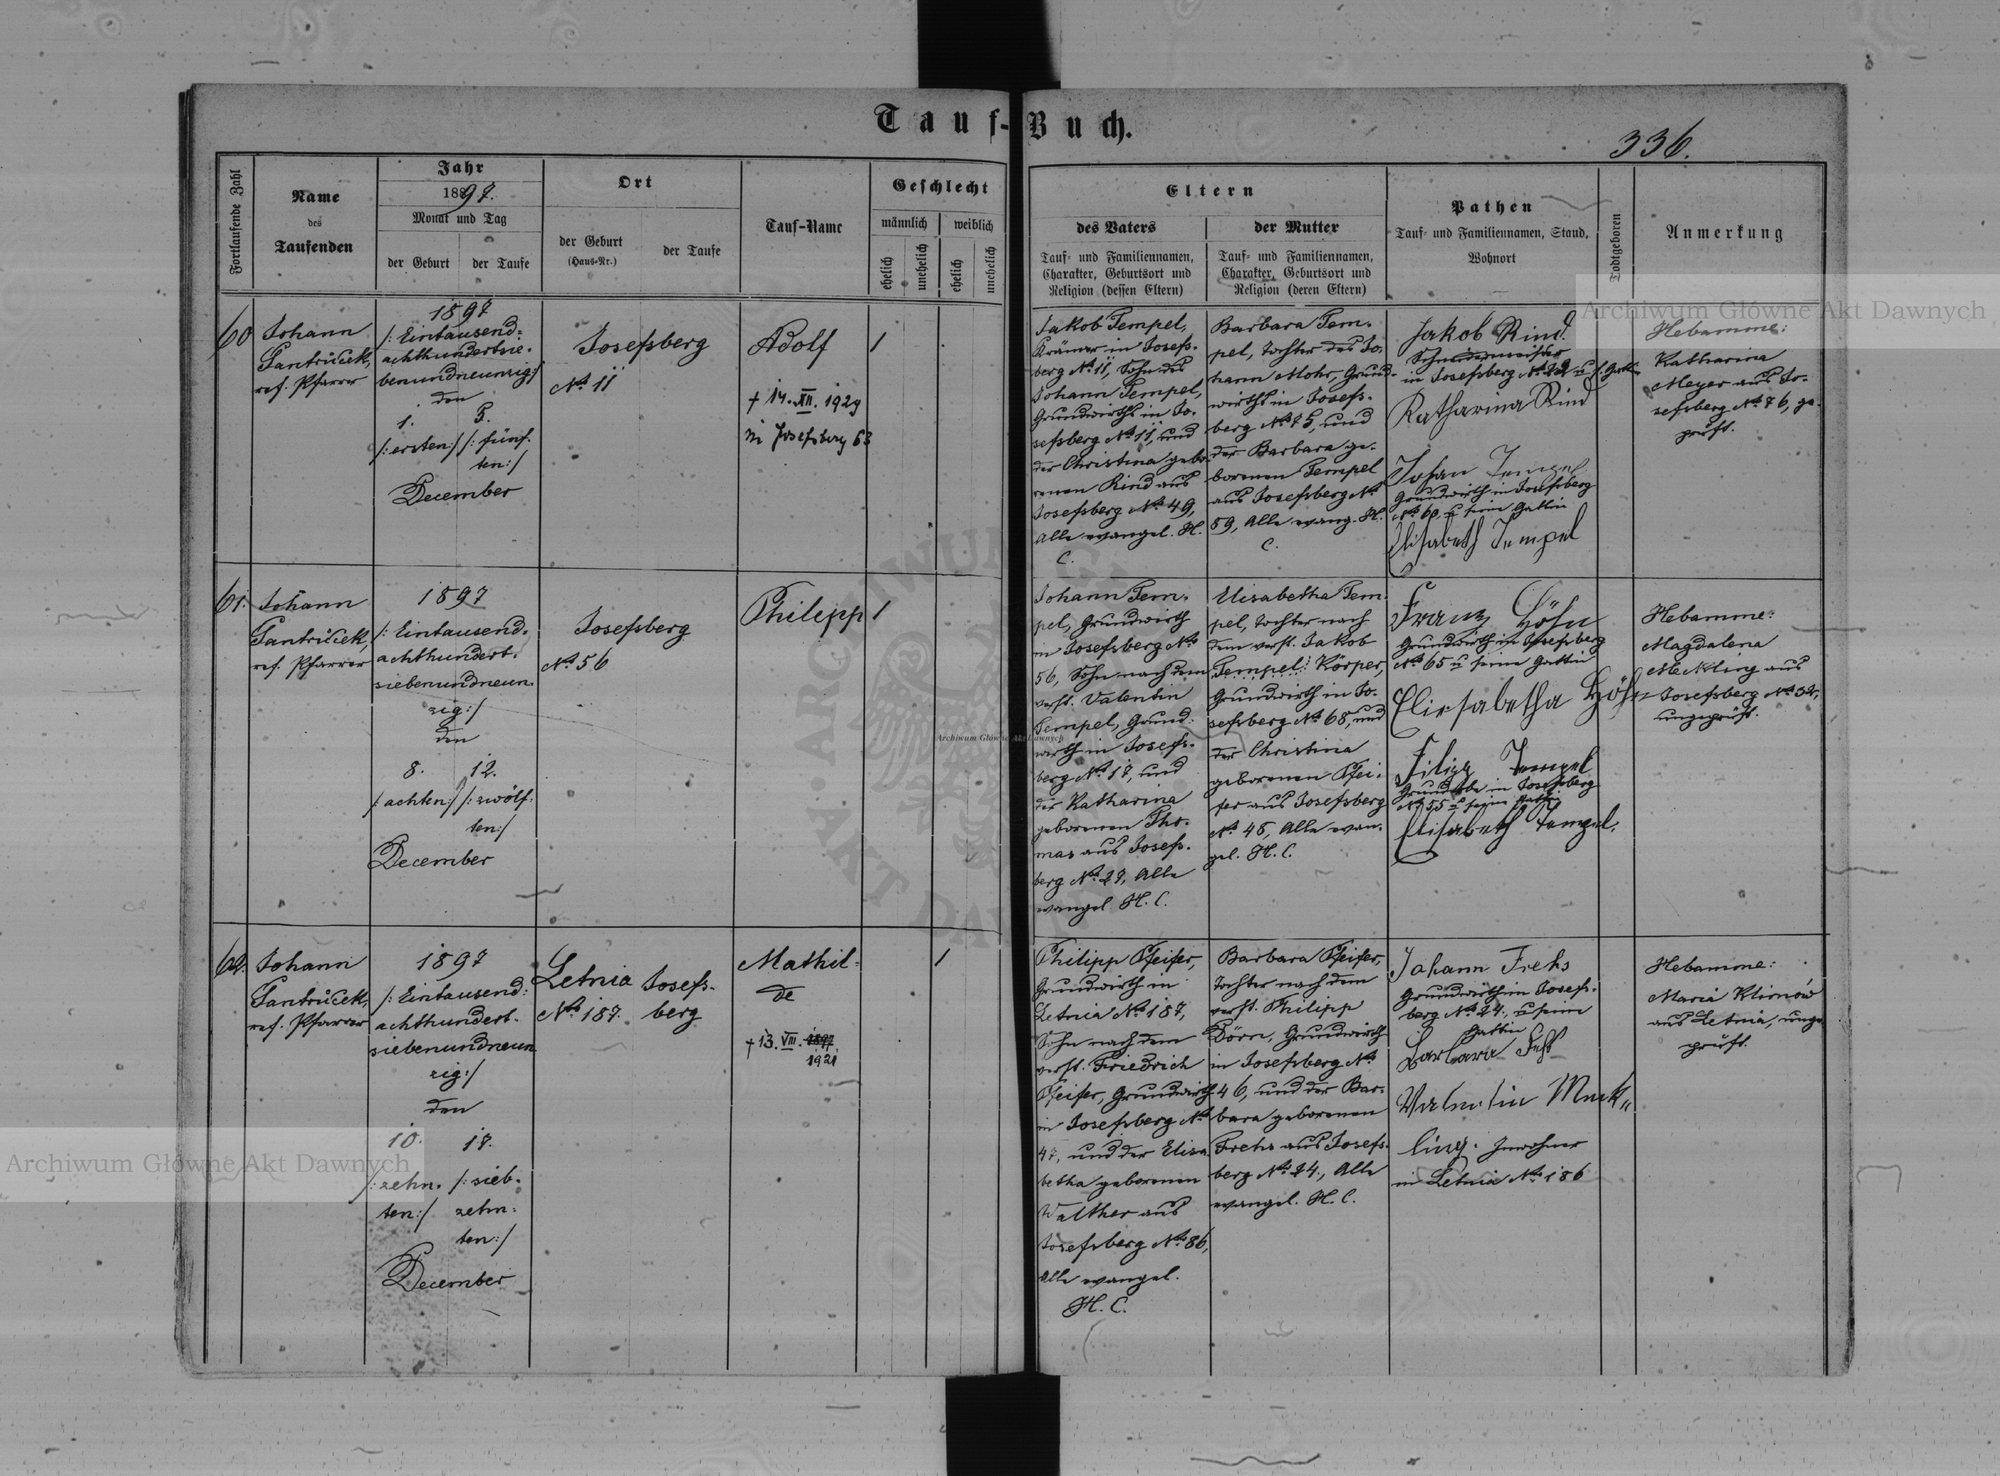 Tauf-Buch.
336.
Fortlaufende Zahl
Name
des
Taufenden
Jahr
1897.
Monat und Tag
der Geburt
der Taufe
Ort
der Geburt
(Haus-Nr.)
der Taufe
Tauf-Name
Geschlecht
männlich
weiblich
ehelich
unehelich
ehelich
unehelich
Eltern
des Vaters
Tauf- und Familiennamen,
Charakter, Geburtsort und
Religion (dessen Eltern)
der Mutter
Tauf- und Familiennamen,
Charakter, Geburtsort und
Religion (deren Eltern)
Pathen
Tauf- und Familiennamen, Stand,
Wohnort
Todtgeboren
Anmerkung
60
Johann
ref. Pfarrer
1897
/: Eintausend=
achthundertsie-
benundneunzig:/
den
1. 5.
/: ersten:/ /: fünf-
ten:/
December
Josefsberg
No 11
Adolf
+ 14. XII. 1929
in Josefsberg 63
1
Jakob Tempel,
Krämer in Josefs-
berg No 11, Sohn des
Johann Tempel,
Grundwirths in Jo-
sefsberg No 11, und
der Christina gebo-
renen Rind aus
Josefsberg No 49,
Alle evangel. H.
C.
Barbara Tem-
pel, Tochter des Jo-
hann Mohr, Grund-
wirths in Josefs-
berg No 75, und
der Barbara ge-
borenen Tempel
aus Josefsberg No
59, Alle evang. H.
C.
Jakob Rind
in Josefsberg
Katharina Rind
Johan Tempel
Grundwirth in Josefsberg
No 60, u seine Gattin
Elisabeth Tempel
Hebamme:
Katharina
Meyer aus Jo-
sefsberg No 76, ge-
prüft.
61.
Johann
ref. Pfarrer
1897
/: Eintausend-
achthundert-
siebenundneun-
zig:/
den
8. 12.
/: achten:/ /: zwölf-
ten:/
December
Josefsberg
No 56
Philipp
1
Johann Tem-
pel, Grundwirth
in Josefsberg No
56, Sohn nach dem
verst. Valentin
Tempel, Grund-
wirth in Josefs-
berg No 17, und
der Katharina
geborenen Tho-
mas aus Josefs-
berg No 27, Alle
evangel. H. C.
Elisabetha Tem-
pel, Tochter nach
dem verst. Jakob
Tempel: Körper,
Grundwirth in Jo-
sefsberg No 68, und
der Christina
geborenen Pfei-
fer aus Josefsberg
No 48, Alle evan-
gel. H. C.
Franz Höhn
Grundwirth in Josefsberg
No 65 u seine Gattin
Elisabetha Höhn
Filipp Tempel
in Josefsberg
No 55 u seine
Elisabeth Tempel.
Hebamme:
Magdalena
Mekling aus
Josefsberg No 32,
ungeprüft.
62.
Johann
ref. Pfarrer
1897
/: Eintausend:
achthundert-
siebenundneun
zig:/
den
10. 17.
/: zehn- /: sieb-
ten:/ zehn-
ten:/
December
Letnia
No 187.
Josefs-
berg
Mathil-
de
+ 13. VIII. 1897
1921
1
Philipp Pfeifer,
Grundwirth in
Letnia No 187,
Sohn nach dem
verst. Friedrich
Pfeifer, Grundwirth
in Josefsberg No
47, und der Elisa-
betha geborenen
Walther aus
Josefsberg No 86,
Alle evangel.
H. C.
Barbara Pfeifer,
Tochter nach dem
verst. Philipp
Dörn, Grundwirth
in Josefsberg No
46, und der Bar-
bara geborenen
Frehs aus Josefs-
berg No 24., Alle
evangel. H. C.
Johann Frehs
Grundwirth in Josefs-
berg No 24., u seine
Gattin
Valentin Mek„
ling. Inwohner
in Letnia No 186
Hebamme:
Maria Klimów
aus Letnia, unge-
prüft.
Archiwum Główne Akt Dawnych
Archiwum Główne Akt Dawnych
Archiwum Główne Akt Dawnych